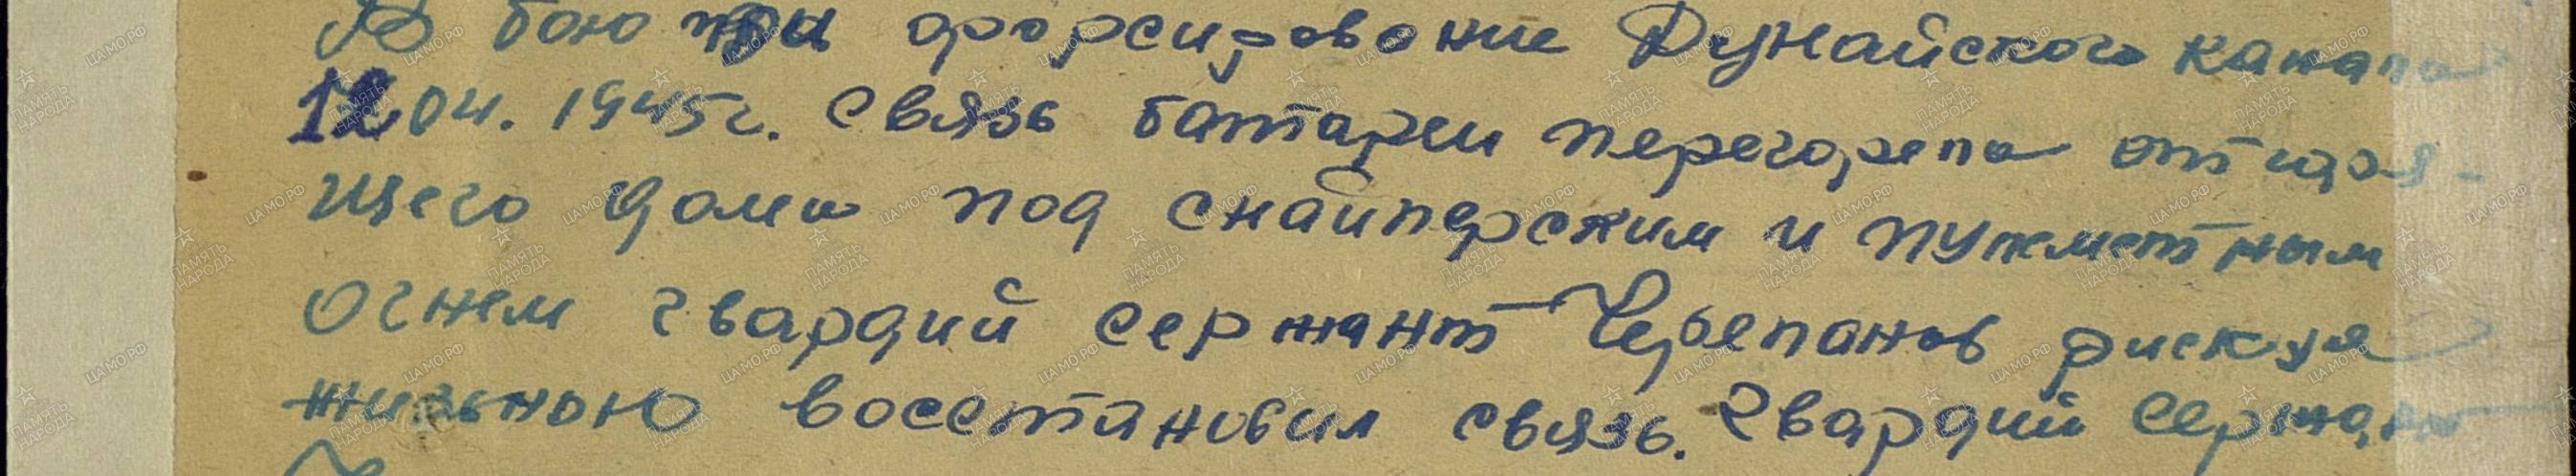 В бою при форсирование Дунайского канала
12 04. 1945г. связь баттареи перегорела от горя-
щего дома под снайперским и пулеметным
огнем гвардий сержант Черепанов рискуя
жизьною восстановил связь. Гвардий сержант